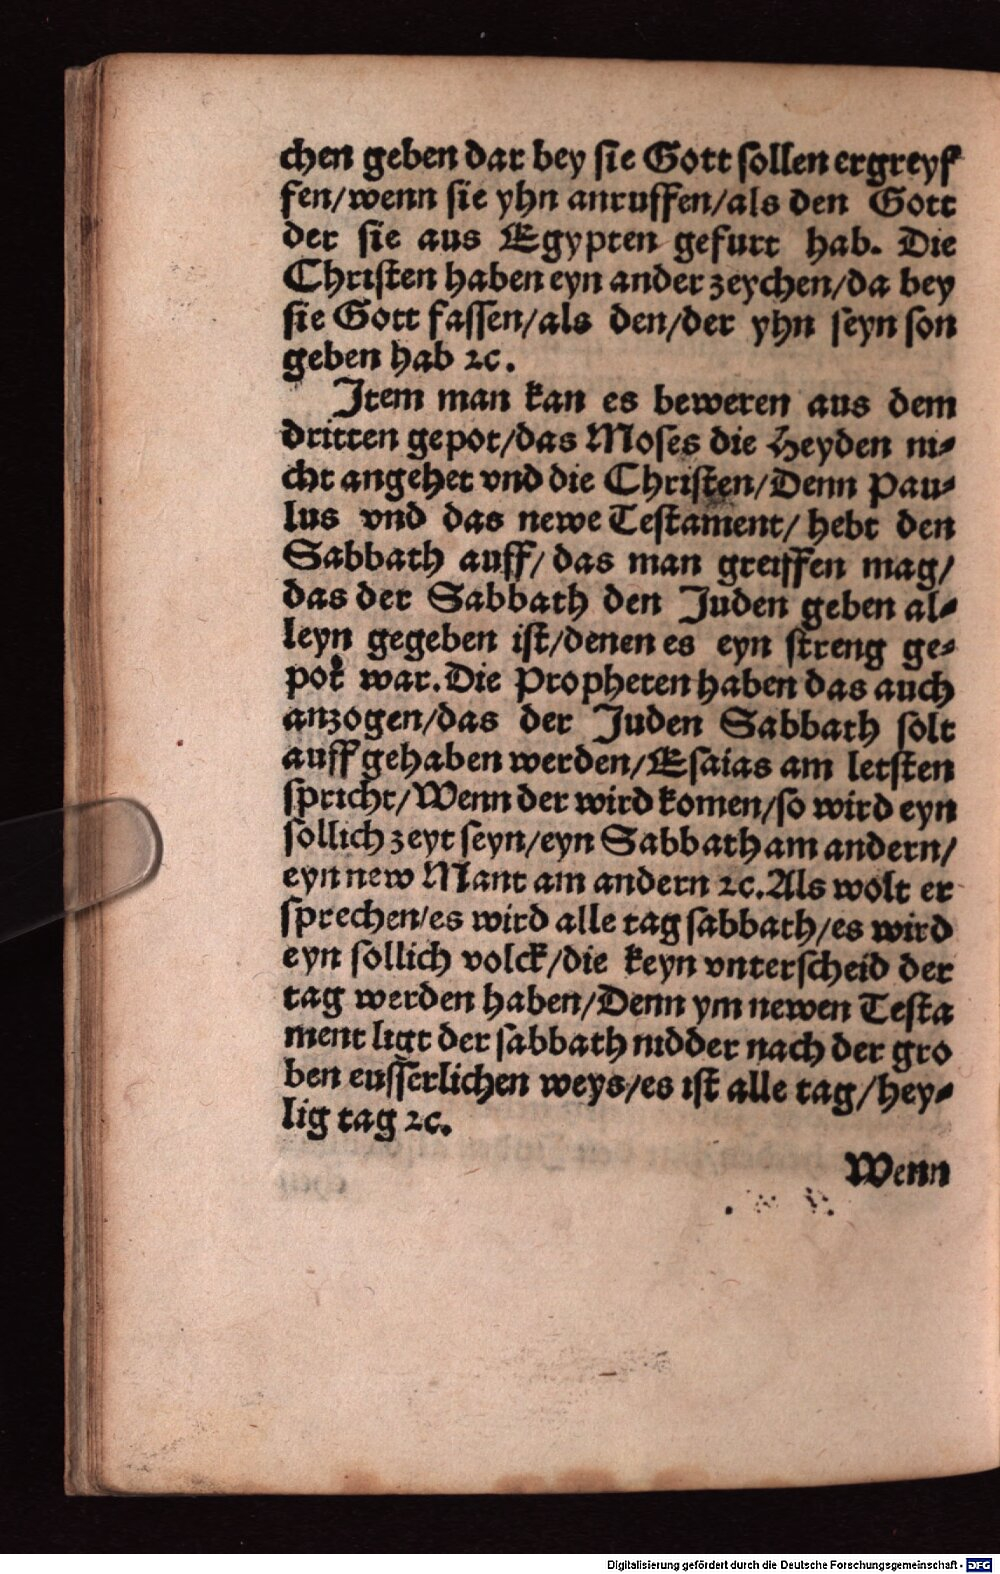 chen geben dar bey sie Gott sollen ergreyf
fen/wenn sie yhn anruffen/als den Gott
der sie aus Egypten gefurt hab. Die
Christen haben eyn ander zeychen/da bey
sie Gott fassen/als den/der yhn seyn son
geben hab ꝛc.
Item man kan es beweren aus dem
dritten gepot/das Moses die Heyden ni⸗
cht angehet vnd die Christen/Denn Pau⸗
lus vnd das newe Testament/ hebt den
Sabbath auff/ das man greiffen mag/
das der Sabbath den Juden geben al⸗
leyn gegeben ist/denen es eyn streng ge⸗
pot war. Die Propheten haben das auch
anzogen/das der Juden Sabbath solt
auff gehaben werden/Esaias am letsten
spricht/Wenn der wird komen/so wird eyn
sollich zeyt seyn/eyn Sabbath am andern/
eyn new Mant am andern ꝛc. Als wolt er
sprechen/es wird alle tag sabbath/es wird
eyn sollich volck/die keyn vnterscheid der
tag werden haben/Denn ym newen Testa
ment ligt der sabbath nidder nach der gro
ben eusserlichen weys/es ist alle tag/hey⸗
lig tag ꝛc.
Wenn
Digitalisierung gefördert durch die Deutsche Forschungsgemeinschaft - DFG